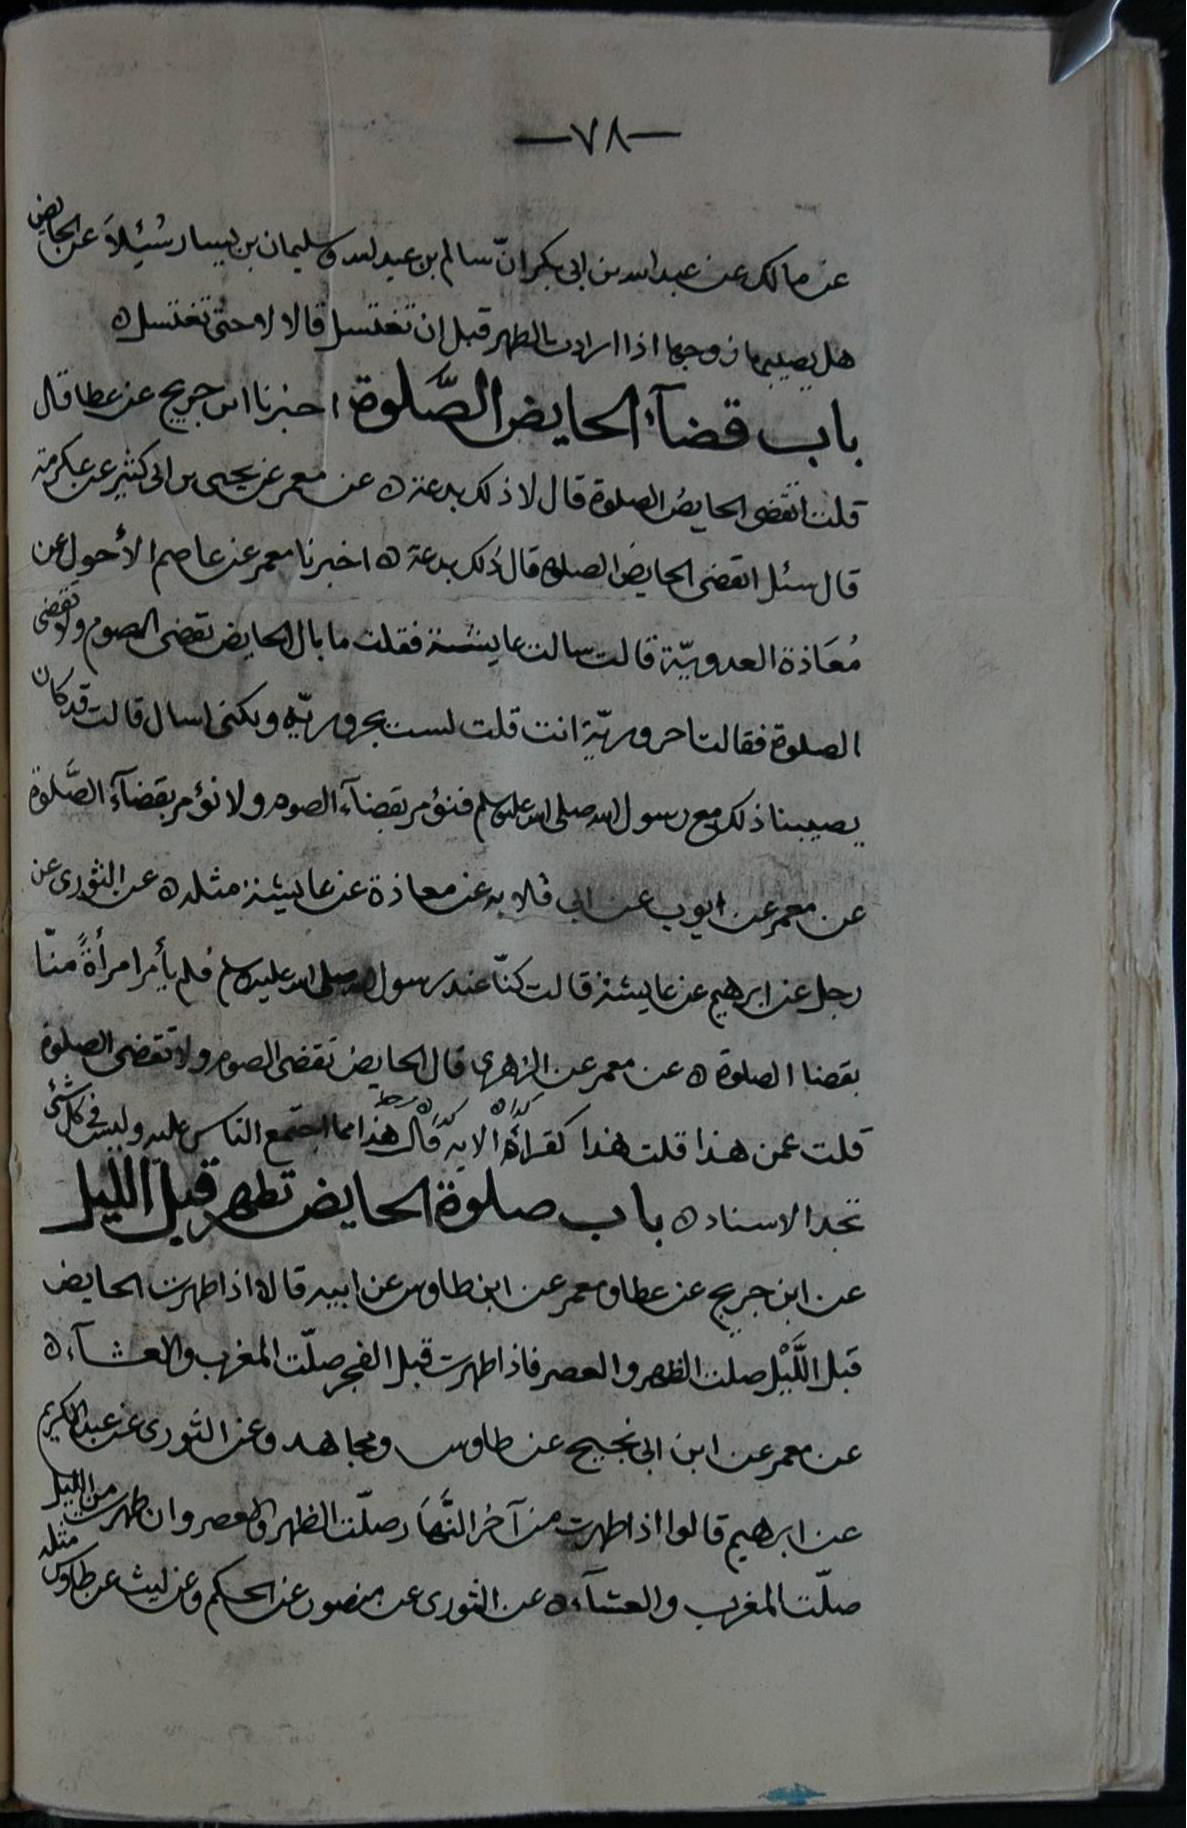 —٧٨—
عن مالك عن عبد الله بن ابى بكر انّ سالم بن عبد الله وسليمان بن يسار سُئِلاَ عن الحايض
هل يصيبها زوجها اذا ارادت الطهر قبل ان تغتسل قالا لا حتى تغتسل ه
باب قضآء الحايض الصَّلوة اخبرنا ابن جريج عن عطا قال
قلت اتقضى الحايضُ الصلوة قال لا ذلك بدعة ه عن معمر عن يحيى بن ابى كثير عن عكرمة
قال سئل اتقضى الحايض الصلوة قال ذلك بدعة ه اخبرنا معمر عن عاصم الأحول عن
مُعَاذة العدويّة قالت سالت عايشة فقلت ما بال الحايض تقضى الصوم ولا تقضى
الصلوة فقالت احروريّة انت قلت لست بحروريّة ولكنى اسال قالت قد كان
يصيبنا ذلك مع رسول الله صلى الله عليه وسلم فنؤمر بقضآء الصوم ولا نؤمر بقضآء الصَّلوة
عن معمر عن ايوب عن ابى قلابه عن معاذة عن عايشة مثله ه عن الثورى عن
رجل عن ابرهيم عن عايشة قالت كنّا عند رسول الله صلى الله عليه وسلم فلم يأمر امرأةً منّا
بقضا الصلوة ه عن معمر عن الزهرى قال الحايضُ تقضى الصوم ولا تقضى الصلوة
قلت عمن هذا قلت هذا كقراة الايه قال هذا مما اجتمع الناس عليه وليس فى كل شئ
تجد الاسناد ه باب صلوة الحايض تطهر قبل الليل
عن ابن جريج عن عطا ومعمر عن ابن طاوس عن ابيه قالا اذا طهرت الحايض
قبل اللَّيْل صلت الظهر والعصر فاذا طهرت قبل الفجر صلّت المغرب والعشآء ه
عن معمر عن ابن ابى نجيح عن طاوس ومجاهد وعن الثَّورى عن عبد الكريم
عن ابرهيم قالوا اذا طهرت من آخر النَّهَار صلّت الظهر والعصر وان طهرت من الليل
صلّت المغرب والعشآء ه عن الثورى عن منصور عن الحكم وعن ليث عن طاوس مثله